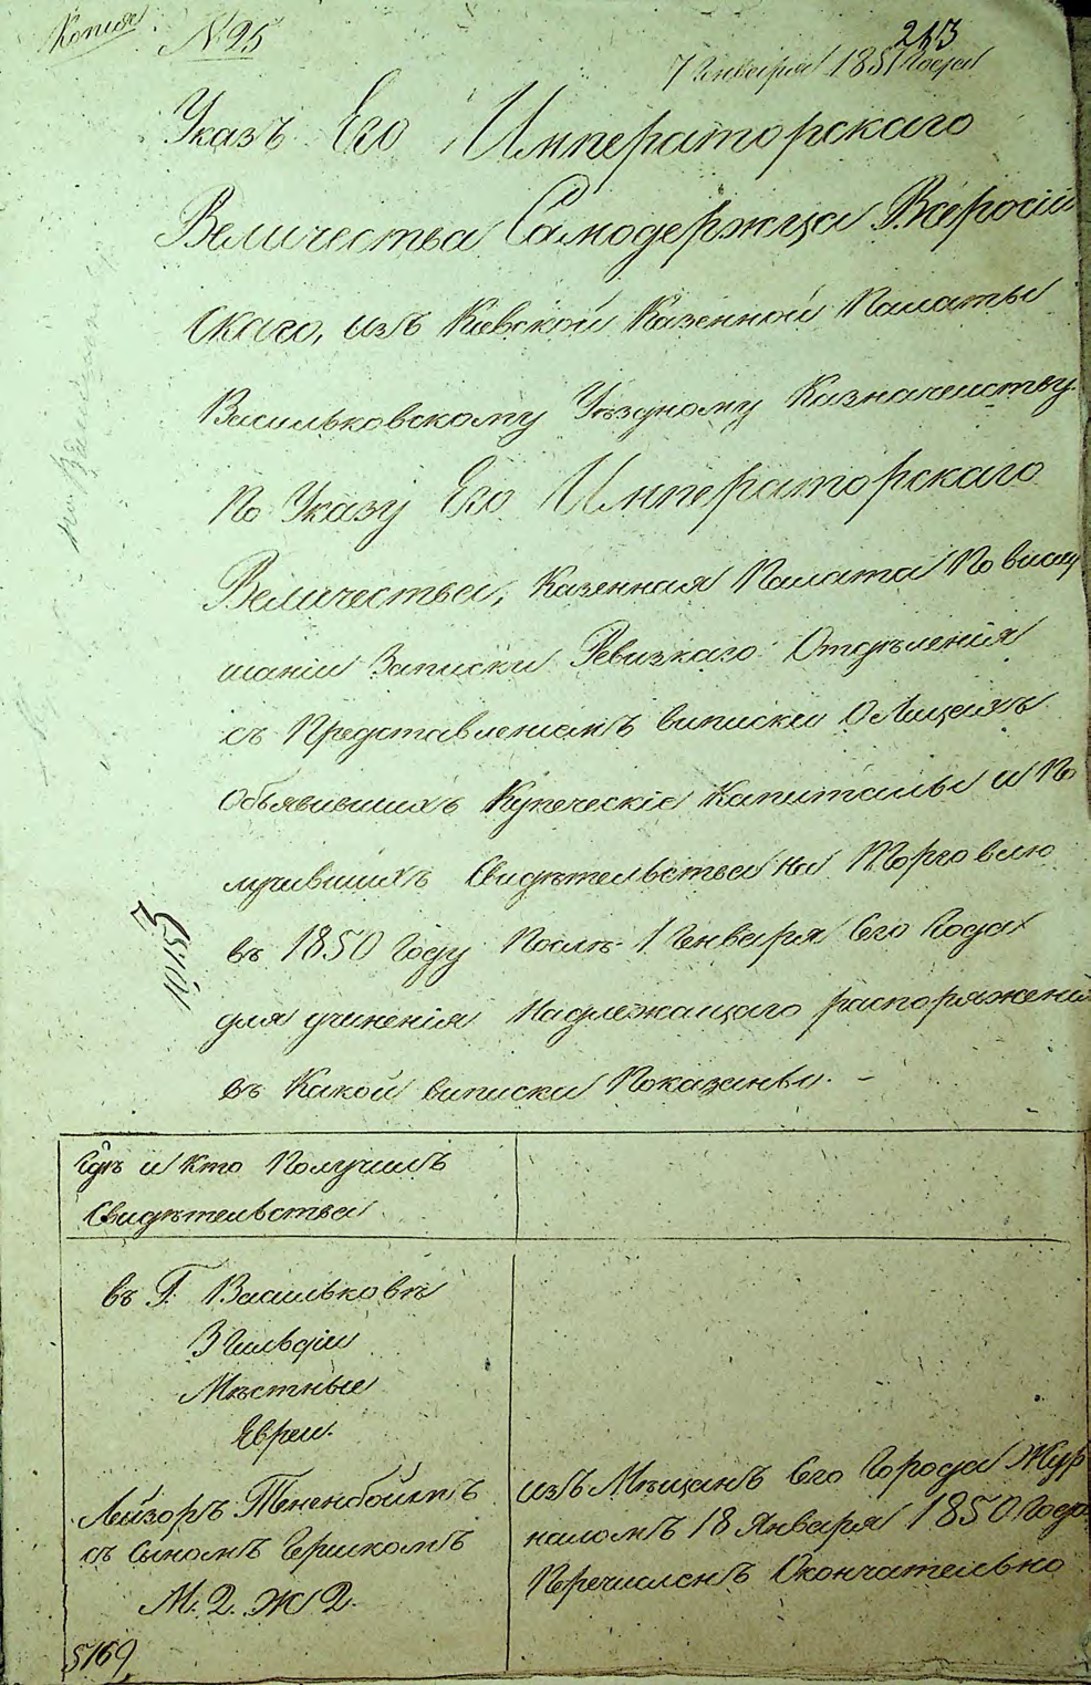 Копия
№ 25
213
7 Генваря 1851 Года
Указъ Его Императорскаго
Величества Самодержца Всеросій
скаго, изъ Кіевской Казенной Палаты
Васильковскому Уѣздному Казначеиству.
По Указу Его Императорскаго
Величества, Казенная Палата По вислу
шаніи Записки Ревизкаго Отдѣленія
съ Представленіемъ виписки О Лицахъ
Объявившихъ Купеческіе Капиталы и По
лучившихъ Свидѣтельства На Торговлю
въ 1850 Году Послѣ 1 Генваря Сего Года
для учиненія Надлежащаго распоряжені
въ Какой виписки Показаны. –
Гдѣ и Кто Получилъ
Свидѣтельства
въ Г. Васильковѣ
3 Гильдіи
Мѣстные
Евреи.
Лейзоръ Тененбоймъ
съ Сыномъ Гершкомъ
М. 2. Ж 2.
изъ Мѣщанъ Сего Города Жур
наломъ 18 Января 1850 Года
Перечисленъ Окончательно
5169